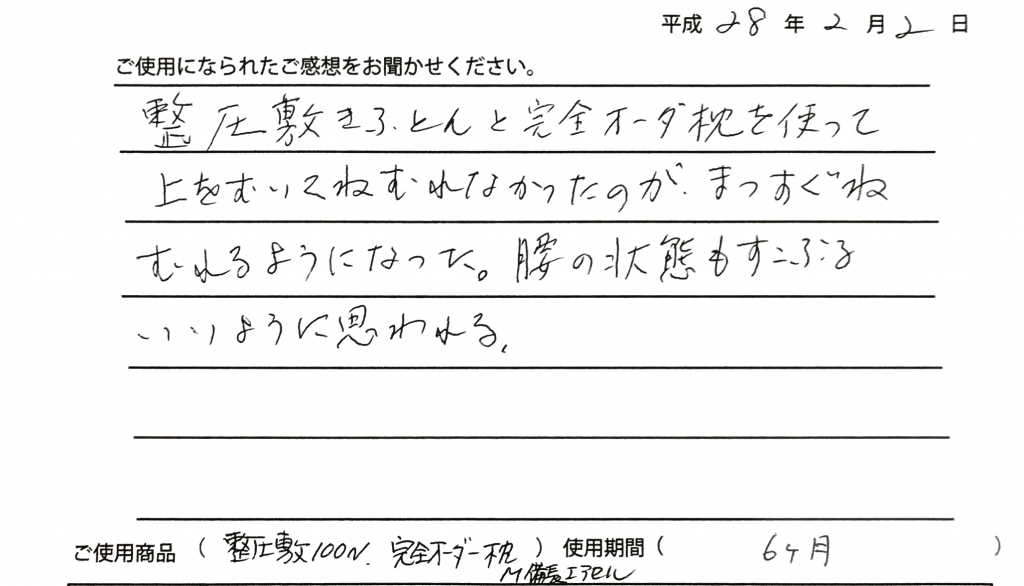 平成 28 年 2 月 2 日
ご使用になられたご感想をお聞かせください。
整圧敷きふとんと完全オーダ枕を使って
上をむいてねむれなかったのが、まっすぐね
むれるようになった。腰の状態もすこぶる
いいように思われる。
ご使用商品 ( 整圧敷100N、完全オーダー枕 ) 使用期間 ( 6ヶ月 )
M備長エアセル